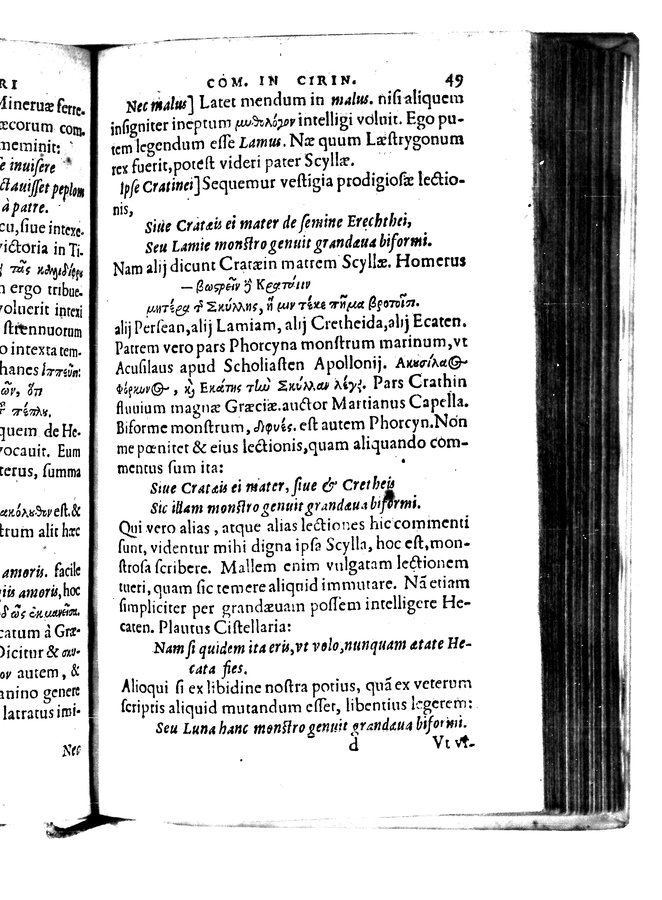 RI
Mineruæ ferre.
æcorum com.
meminit:
e inuisere
ctauisset peplom
à patre.
cu, siue intexe.
victoria in Ti.
m ergo tribue.
voluerit intexi
strennuorum
o intexta tem.
hanes ἱππεῦσι:
ῶν, ὅτι
πέπλυ.
quem de He.
vocauit. Eum
terus, summa
ακόλυθον est. &
trum alit hæc
amoris. facile
iis amoris, hoc
catum à Græ-
Dicitur &
ον autem, &
anino genere
latratus imi-
Nec
COM. IN CIRIN. 49
Nec malus] Latet mendum in malus. nisi aliquem
insigniter ineptum μυθολόγον intelligi voluit. Ego pu-
tem legendum esse Lamus. Næ quum Læstrygonum
rex fuerit, potest videri pater Scyllæ.
Ipse Cratinei] Sequemur vestigia prodigiosæ lectio-
nis,
Siue Cratæis ei mater de semine Erechthei,
Seu Lamie monstro genuit grandæua biformi.
Nam alij dicunt Cratæin matrem Scyllæ. Homerus
— βωςρεῖν ȣ̓ Κραταιὶν
μητέρα τ Σκύλλης, ἥ μιν τέκε πῆμα βροτοῖσι.
alij Persean, alij Lamiam, alij Cretheida, alij Ecaten.
Patrem vero pars Phorcyna monstrum marinum, vt
Acusilaus apud Scholiasten Apollonij. Ακυσίλαος
Φόρκυνος, κὶ Εκάτης τὼ Σκύλλαν λέγ. Pars Crathin
fluuium magnæ Græciæ. auctor Martianus Capella.
Biforme monstrum, διφυές. est autem Phorcyn. Non
me pœnitet & eius lectionis, quam aliquando com-
mentus sum ita:
Siue Cratæis ei mater, siue & Cretheis
Sic illam monstro genuit grandæua biformi.
Qui vero alias, atque alias lectiones hic commenti
sunt, videntur mihi digna ipsa Scylla, hoc est, mon-
strosa scribere. Mallem enim vulgatam lectionem
tueri, quam sic temere aliquid immutare. Nã etiam
simpliciter per grandæuam possem intelligere He-
caten. Plautus Cistellaria:
Nam si quidem ita eris, vt volo, nunquam ætate He-
cata fies.
Alioqui si ex libidine nostra potius, quã ex veterum
scriptis aliquid mutandum esset, libentius legerem:
Seu Luna hanc monstro genuit grandæua biformi.
d Vt vt-